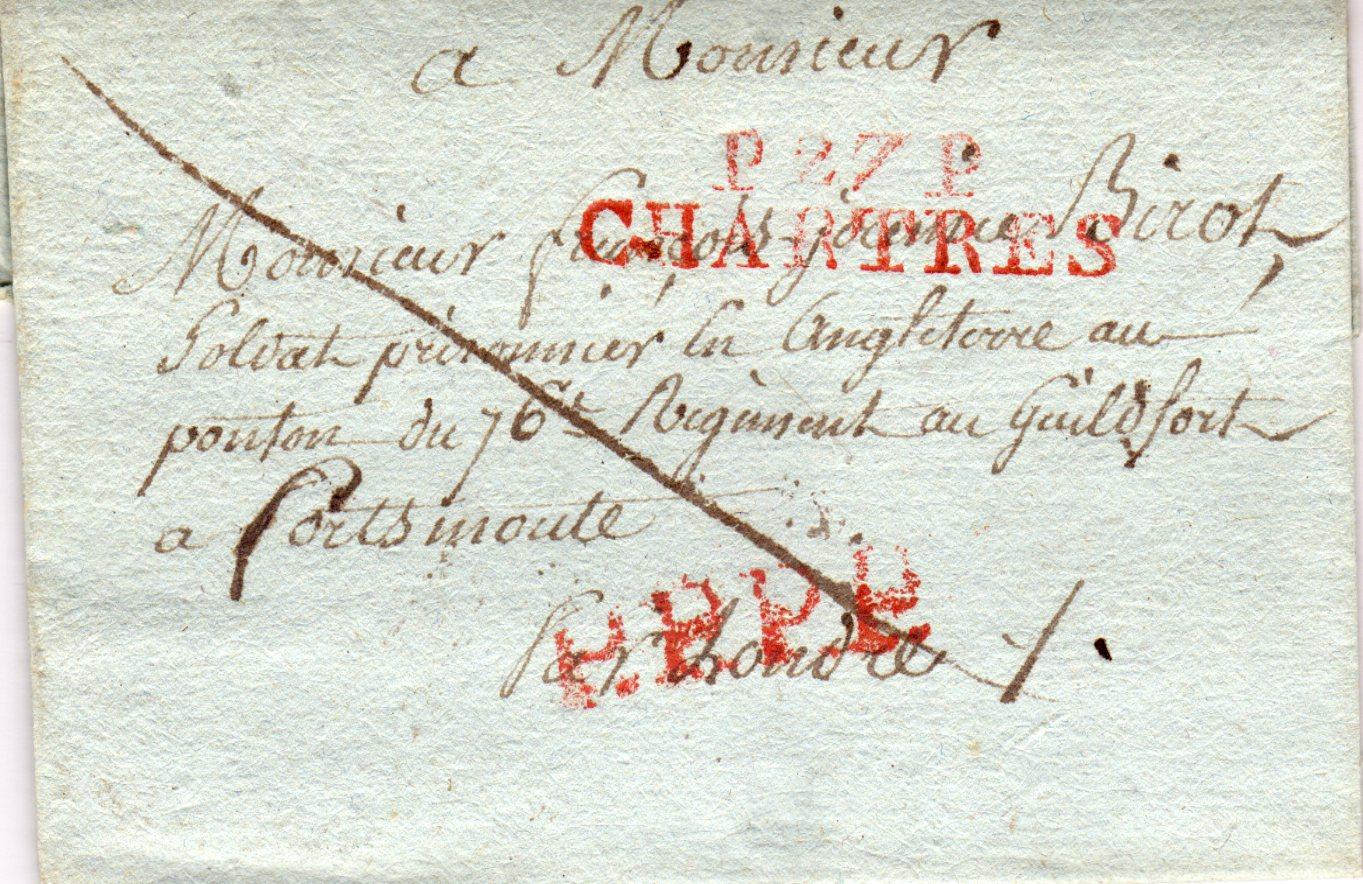 a Monsieur
P 27 P
CHARTRES
Monsieur françois Birot,
Soldat prisonnier en Angleterre au
ponton du 76te Regiment au Guildfort
a Portsmoute
P.PPP
Par Londre